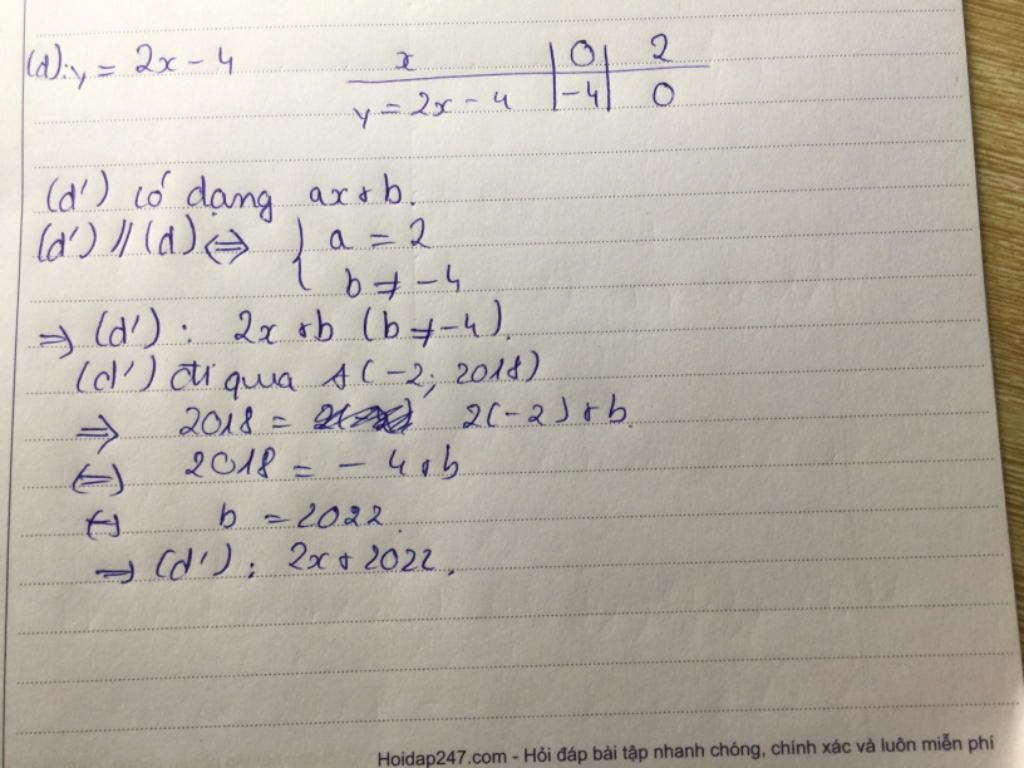 (d): y = 2x - 4
x | 0 | 2
y = 2x - 4 | -4 | 0
(d') có dạng ax + b.
(d') // (d) ⇔ { a = 2
b ≠ -4
⇒ (d') : 2x + b (b ≠ -4).
(d') đi qua A(-2; 2018)
⇒ 2018 = 2(-2) + b.
⇔ 2018 = - 4 + b
⇔ b = 2022.
⇒ (d') : 2x + 2022.
Hoidap247.com - Hỏi đáp bài tập nhanh chóng, chính xác và luôn miễn phí